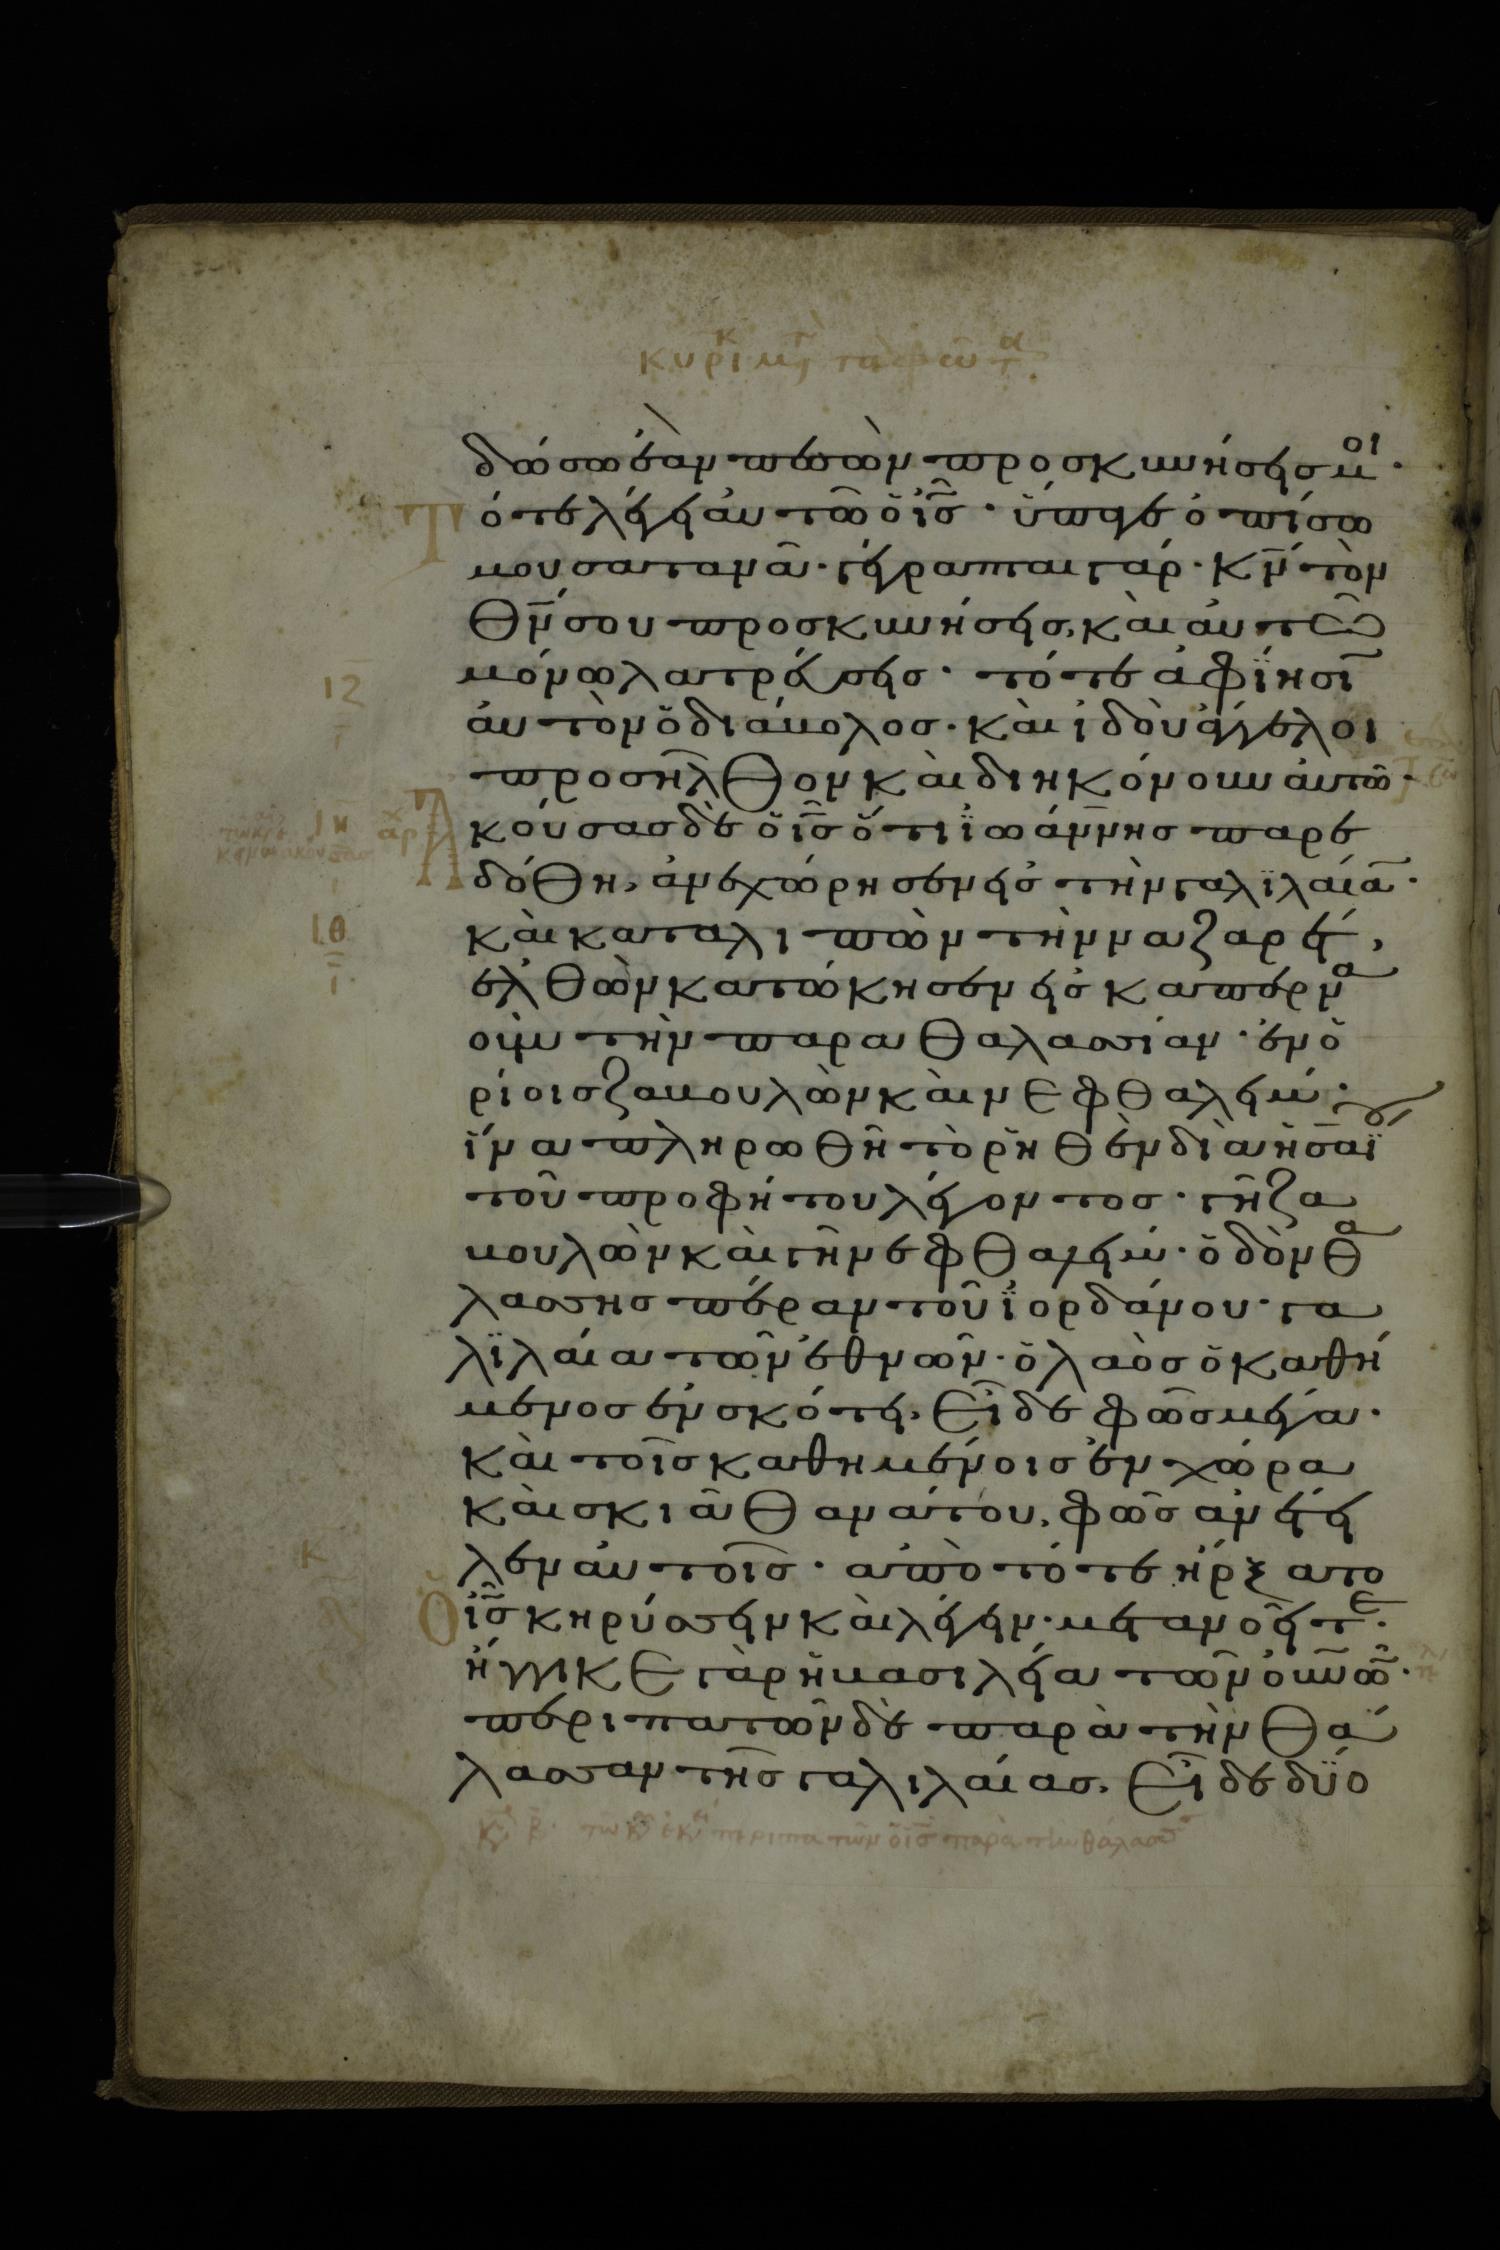 κυριακῇ μετὰ τὰ φῶτα
δώσω ἐὰν πεσὼν προσκυνήσησ μοι·
Τότε λέγει αὐτῶ ὁ ισ̅· ὕπαγε ὀπίσω
μου σατανᾶ· γέγραπται γάρ· κν̅ τὸν
θν̅ σου προσκυνήσεισ, καὶ αὐτῶ
μόνω λατρεύσεισ· τότε ἀφίησϊ
αὐτὸν ὁ διάβολοσ· καὶ ἰδοὺ ἄγγελοι
προσῆλθον καὶ διηκόνουν αὐτῶ·
ιζ
ι
Ἀκούσασ δὲ ὁ ισ̅ ὅτι ϊωάννησ παρε
ιη
αρχ
δόθη, ἀνεχώρησεν εἰσ τὴν γαλϊλαία̅·
ιθ
ι
καὶ καταλιπὼν τὴν ναζαρέτ,
ἐλθὼν κατώκησεν εἰσ καπερνα
οὺμ τὴν παραθαλασσίαν· ἐν ὁ
ρίοισ ζαβουλὼν καὶ νεφθαλείμ·
ἵνα πληρωθῆ τὸ ῥηθὲν διὰ ἠσαΐου
τοῦ προφήτου λέγοντοσ· γῆ ζα
βουλὼν καὶ γῆ νεφθαλείμ· ὁδὸν θα
λάσσησ πέραν τοῦ ϊορδάνου· γα
λϊλαία τῶν ἐθνῶν· ὁ λαὸσ ὁ καθή
μενοσ ἐν σκότει, εἶδε φῶσ μέγα·
καὶ τοῖσ καθημένοισ ἐν χώρα
καὶ σκιᾶ θανάτου, φῶσ ἀνέτει
λεν αὐτοῖσ· ἀπὸ τότε ἤρξατο
κ
Ὁ ισ̅ κηρύσσειν καὶ λέγειν· μετανοεῖτε·
ἤγγικε γὰρ ἡ βασιλεία τῶν οὐνῶν·
περιπατῶν δὲ παρὰ τὴν θά
λασσαν τῆσ γαλιλαίασ, εἶδε δύο
κυ β· τῶ κῶ ἐκεί περιπατῶν ὁ ισ̅ παρὰ τὴν θάλασσ